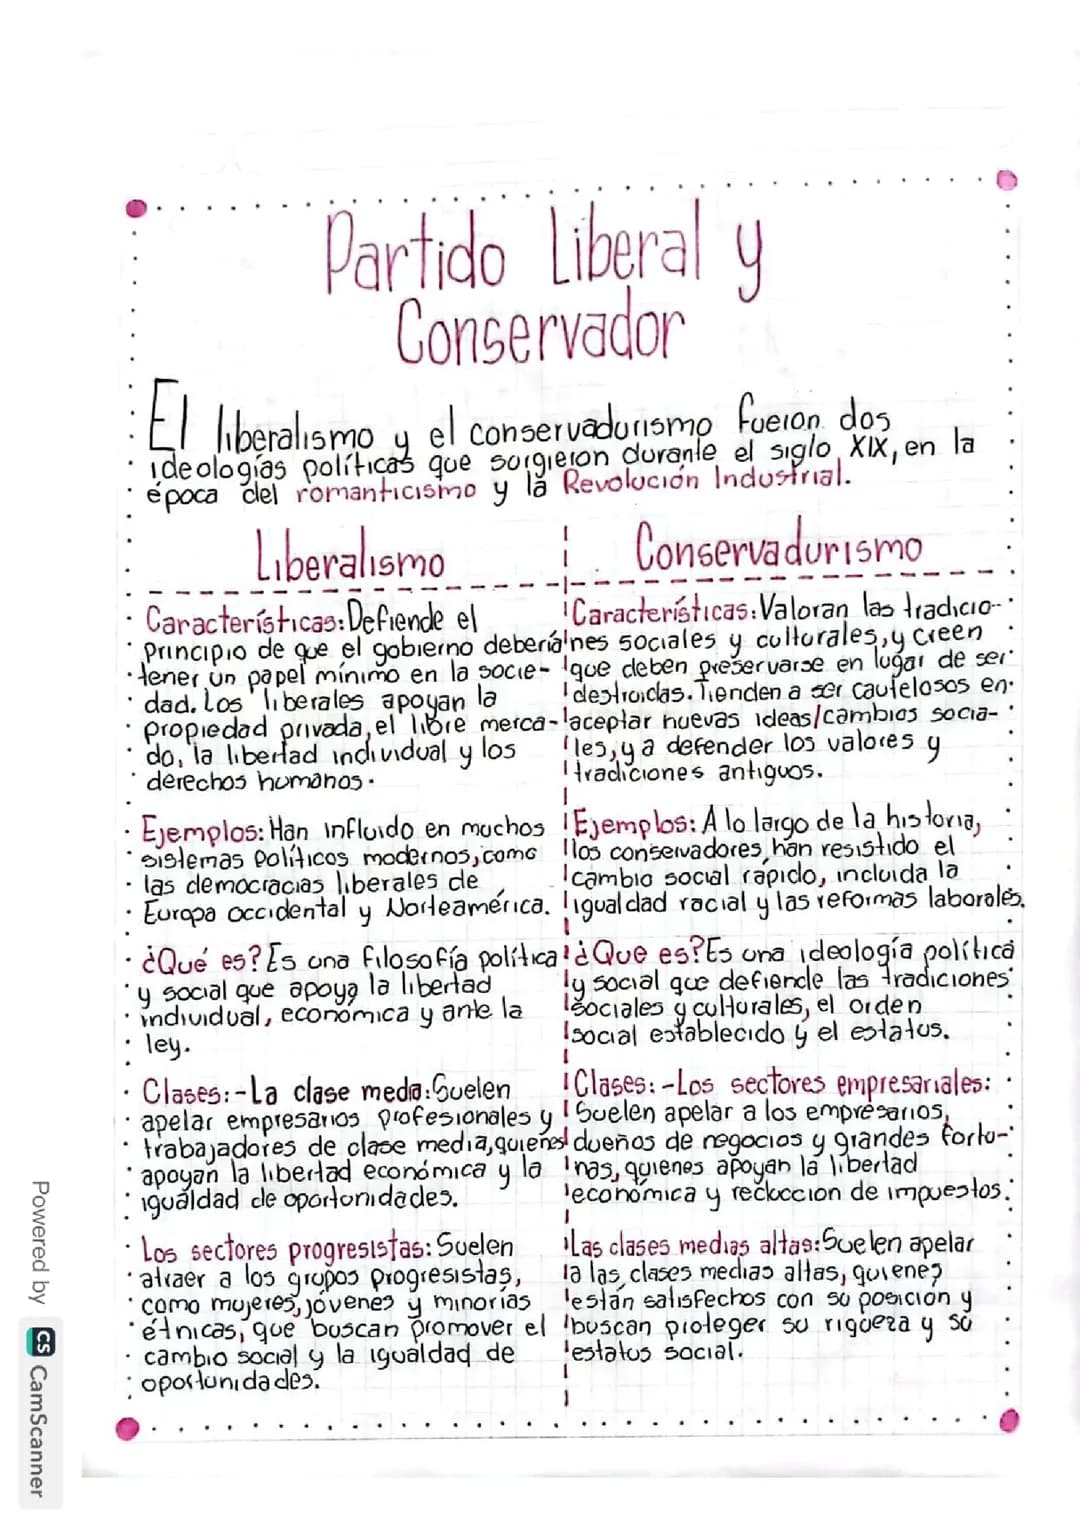 Partido Liberal y
Conservador
El liberalismo y el conservadurismo fueron dos
ideologías políticas que surgieron durante el siglo XIX, en la
época del romanticismo y la Revolución Industrial.
Liberalismo
Características: Defiende el
principio de que el gobierno debería
tener un papel mínimo en la socie-
dad. Los liberales apoyan la
propiedad privada, el libre merca-
do, la libertad individual y los
derechos humanos.
Ejemplos: Han influido en muchos
sistemas políticos modernos, como
las democracias liberales de
Europa occidental y Norteamérica.
¿Qué es? Es una filosofía política
y social que apoya la libertad
individual, económica y ante la
ley.
Clases: -La clase media: Suelen
apelar empresarios profesionales y
trabajadores de clase media, quienes
apoyan la libertad económica y la
igualdad de oportunidades.
Los sectores progresistas: Suelen
atraer a los grupos progresistas,
como mujeres, jóvenes y minorías
étnicas, que buscan promover el
cambio social y la igualdad de
oportunidades.
Conservadurismo
Características: Valoran las tradicio-
nes sociales y culturales, y creen
que deben preservarse en lugar de ser
destruidas. Tienden a ser cautelosos en
aceptar nuevas ideas/cambios socia-
les, y a defender los valores y
tradiciones antiguos.
Ejemplos: A lo largo de la historia,
los conservadores han resistido el
cambio social rápido, incluida la
igualdad racial y las reformas laborales.
¿Que es? Es una ideología política
y social que defiende las tradiciones
sociales y culturales, el orden
social establecido y el estatus.
Clases: -Los sectores empresariales:
Suelen apelar a los empresarios,
dueños de negocios y grandes fortu-
nas, quienes apoyan la libertad
económica y reduccion de impuestos.
Las clases medias altas: Suelen apelar
a las clases medias altas, quienes
están satisfechos con su posición y
buscan proteger su riqueza y su
estatus social.
Powered by CS CamScanner